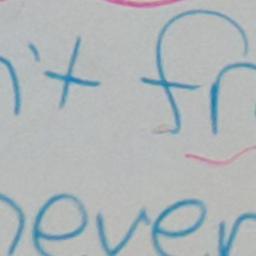 n't fr
never